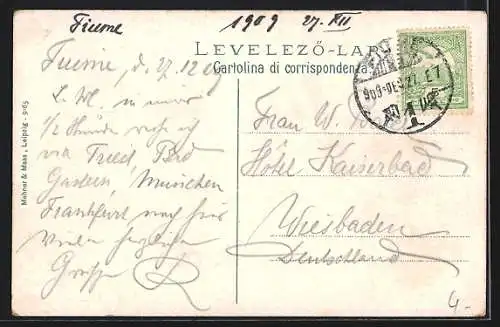 Fiume 1909 27. XII
LEVELEZŐ-LAP
Cartolina di corrispondenza
Fiume, d. 27.12.09
909 DEC 27
1/2 Stunde
via Triest, Bad
Gastein, München
Frankfurt nach
Vielen herzlichen
Grüssen R
Frau W.
Hôtel Kaiserbad
Wiesbaden
Deutschland
Mehner & Maas, Leipzig
4.-